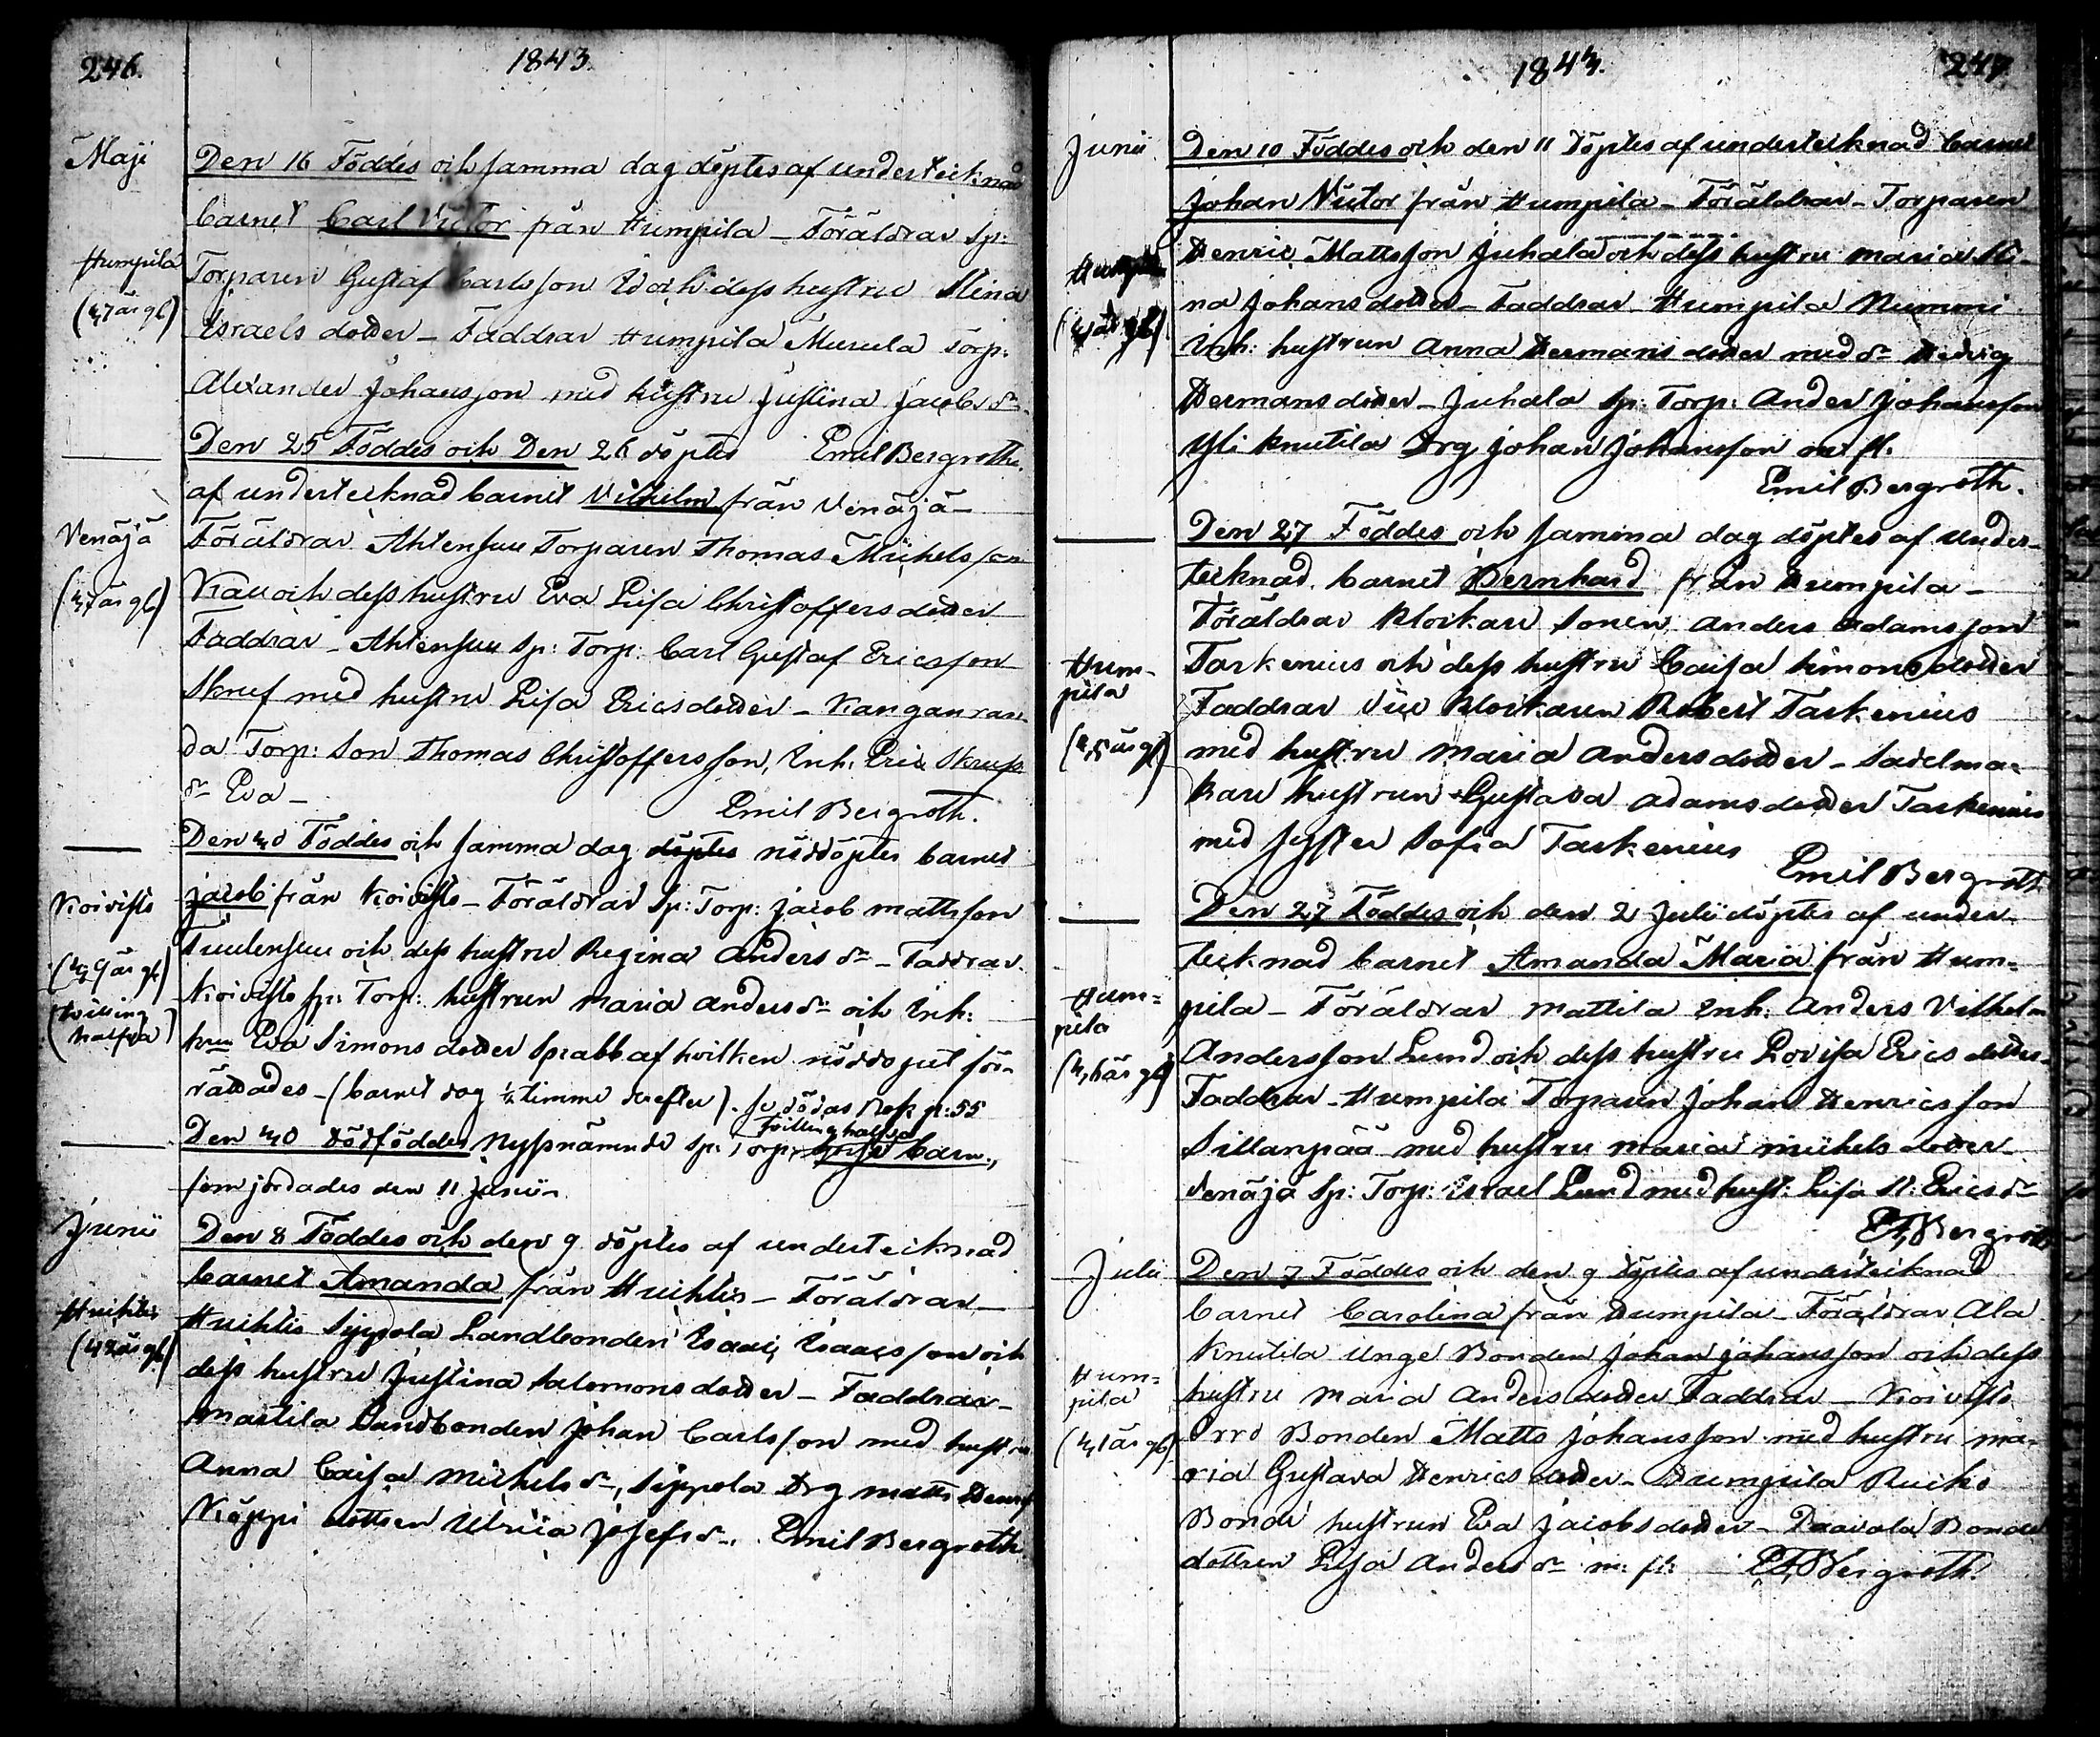 246.
1843.
Maji
Den 16 Föddes och samma dag döptes af undertecknad
barnet Carl Victor från Humpila – Föräldrar Sp:
Humpila
Torparen Gustaf Carlsson och dess hustru Stina
(37 år gl)
Israels dotter – Faddrar Humpila Murula Torp.
Alexander Johansson med hustru Justina Jacobs dr
Den 25 Föddes och Den 26 döptes Emil Bergroth.
af undertecknad barnet Vilhelm från Venäjä –
Venäjä
Föräldrar Ahlensuu Torparen Thomas Michelsson
(37 år gl)
Kau och dess hustru Eva Lisa Christoffers dotter
Faddrar – Ahlensuu Sp: Torp: Carl Gustaf Ericsson
Skruf med hustru Lisa Erics dotter – Kanganran
da Torp: Son Thomas Christoffersson, Inh: Eric Skrufs
dr Eva –
Emil Bergroth.
Den 30 Föddes och samma dag döptes nöddöptes barnet
Koivisto
Jacob från Koivisto – Föräldrar Sp: Torp: Jacob Mattsson
(39 år gl)
Tuulensuu och dess hustru Regina Anders dr – Faddrar
(tvilling
halfva)
Koivisto Sp: Torp: hustrun Maria Anders dr och Inh:
hru Eva Simons dotter Sprabb af hvilken nöddopet för-
rättades – (barnet dog ½ timme derefter). se dödas Bok p: 55
tvilling halfva
Den 30 dödföddes nyssnämnde Sp: Torp: barn,
som jordades den 11 Junii
Junii
Den 8 Föddes och den 9 döptes af undertecknad
barnet Amanda från Huihtis – Föräldrar –
Huihtis
Huihtis Sippola Landbonden Isaac Isaacsson och
(42 år gl)
dess hustru Justina Salomons dotter – Faddrar –
Martila Landbonden Johan Carlsson med hustru
Anna Caisa Michels dr, Sippola Drg Matts Henrss
Köppi dottren Ulrica Josefs dr. Emil Bergroth
1843.
247
Junii
Den 10 Föddes och den 11 döptes af undertecknad barnet
Johan Victor från Humpila – Föräldrar – Torparen
Humpila
Henric Mattsson Juhala och dess hustru Maria Sti-
na Johans dotter – Faddrar – Humpila Nummi
Inh: hustrun Anna Hermans dotter med dr Hedvig
Hermans dotter – Juhala Sp: Torp: Anders Johansson
Yli Knutila Drg Johan Johansson m fl.
Emil Bergroth.
Den 27 Föddes och samma dag döptes af under-
tecknad barnet Bernhard från Humpila –
Föräldrar Klockare Sonen Anders Adamsson
Hum-
pila
Tarkenius och dess hustru Caisa Simons dotter
Faddrar Vice Klockaren Robert Tarkenius
(35 år gl)
med hustru Maria Anders dotter – Sadelma-
kare hustrun Gustava Adams dotter Tarkenius
med syster Sofia Tarkenius
Emil Bergroth
Den 27 Föddes och den 2 Julii döptes af under-
tecknad barnet Amanda Maria från Hum-
Hum-
pila
pila – Föräldrar Mattila Inh: Anders Vilhelm
(36 år gl)
Andersson Lund och dess hustru Lovisa Erics dotter –
Faddrar – Humpila Torparen Johan Henricsson
Sillanpää med hustru Maria Michels dotter –
Venäjä Sp: Torp: Israel Lund med hust: Lisa St: Erics dr
Bergroth
Julii
Den 7 Föddes och den 9 döptes af undertecknad
barnet Carolina från Humpila – Föräldrar Ala
Knutila unge Bonden Johan Johansson och dess
Hum-
pila
hustru Maria Anders dotter Faddrar – Koivisto
(31 år gl)
Orro Bonden Matts Johansson med hustru Ma-
ria Gustava Henrics dotter – Humpila
Bonde hustrun Eva Jacobs dotter – Bonde
dottren Lisa Anders dr m: fl: – Bergroth.